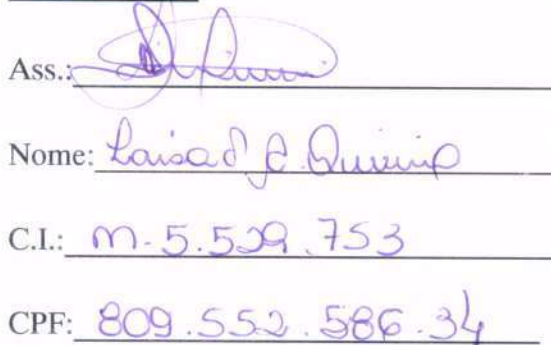 Ass.:
Nome: Laisa d J. C. Quirino
C.I.: M-5.529.753
CPF: 809.552.586.34